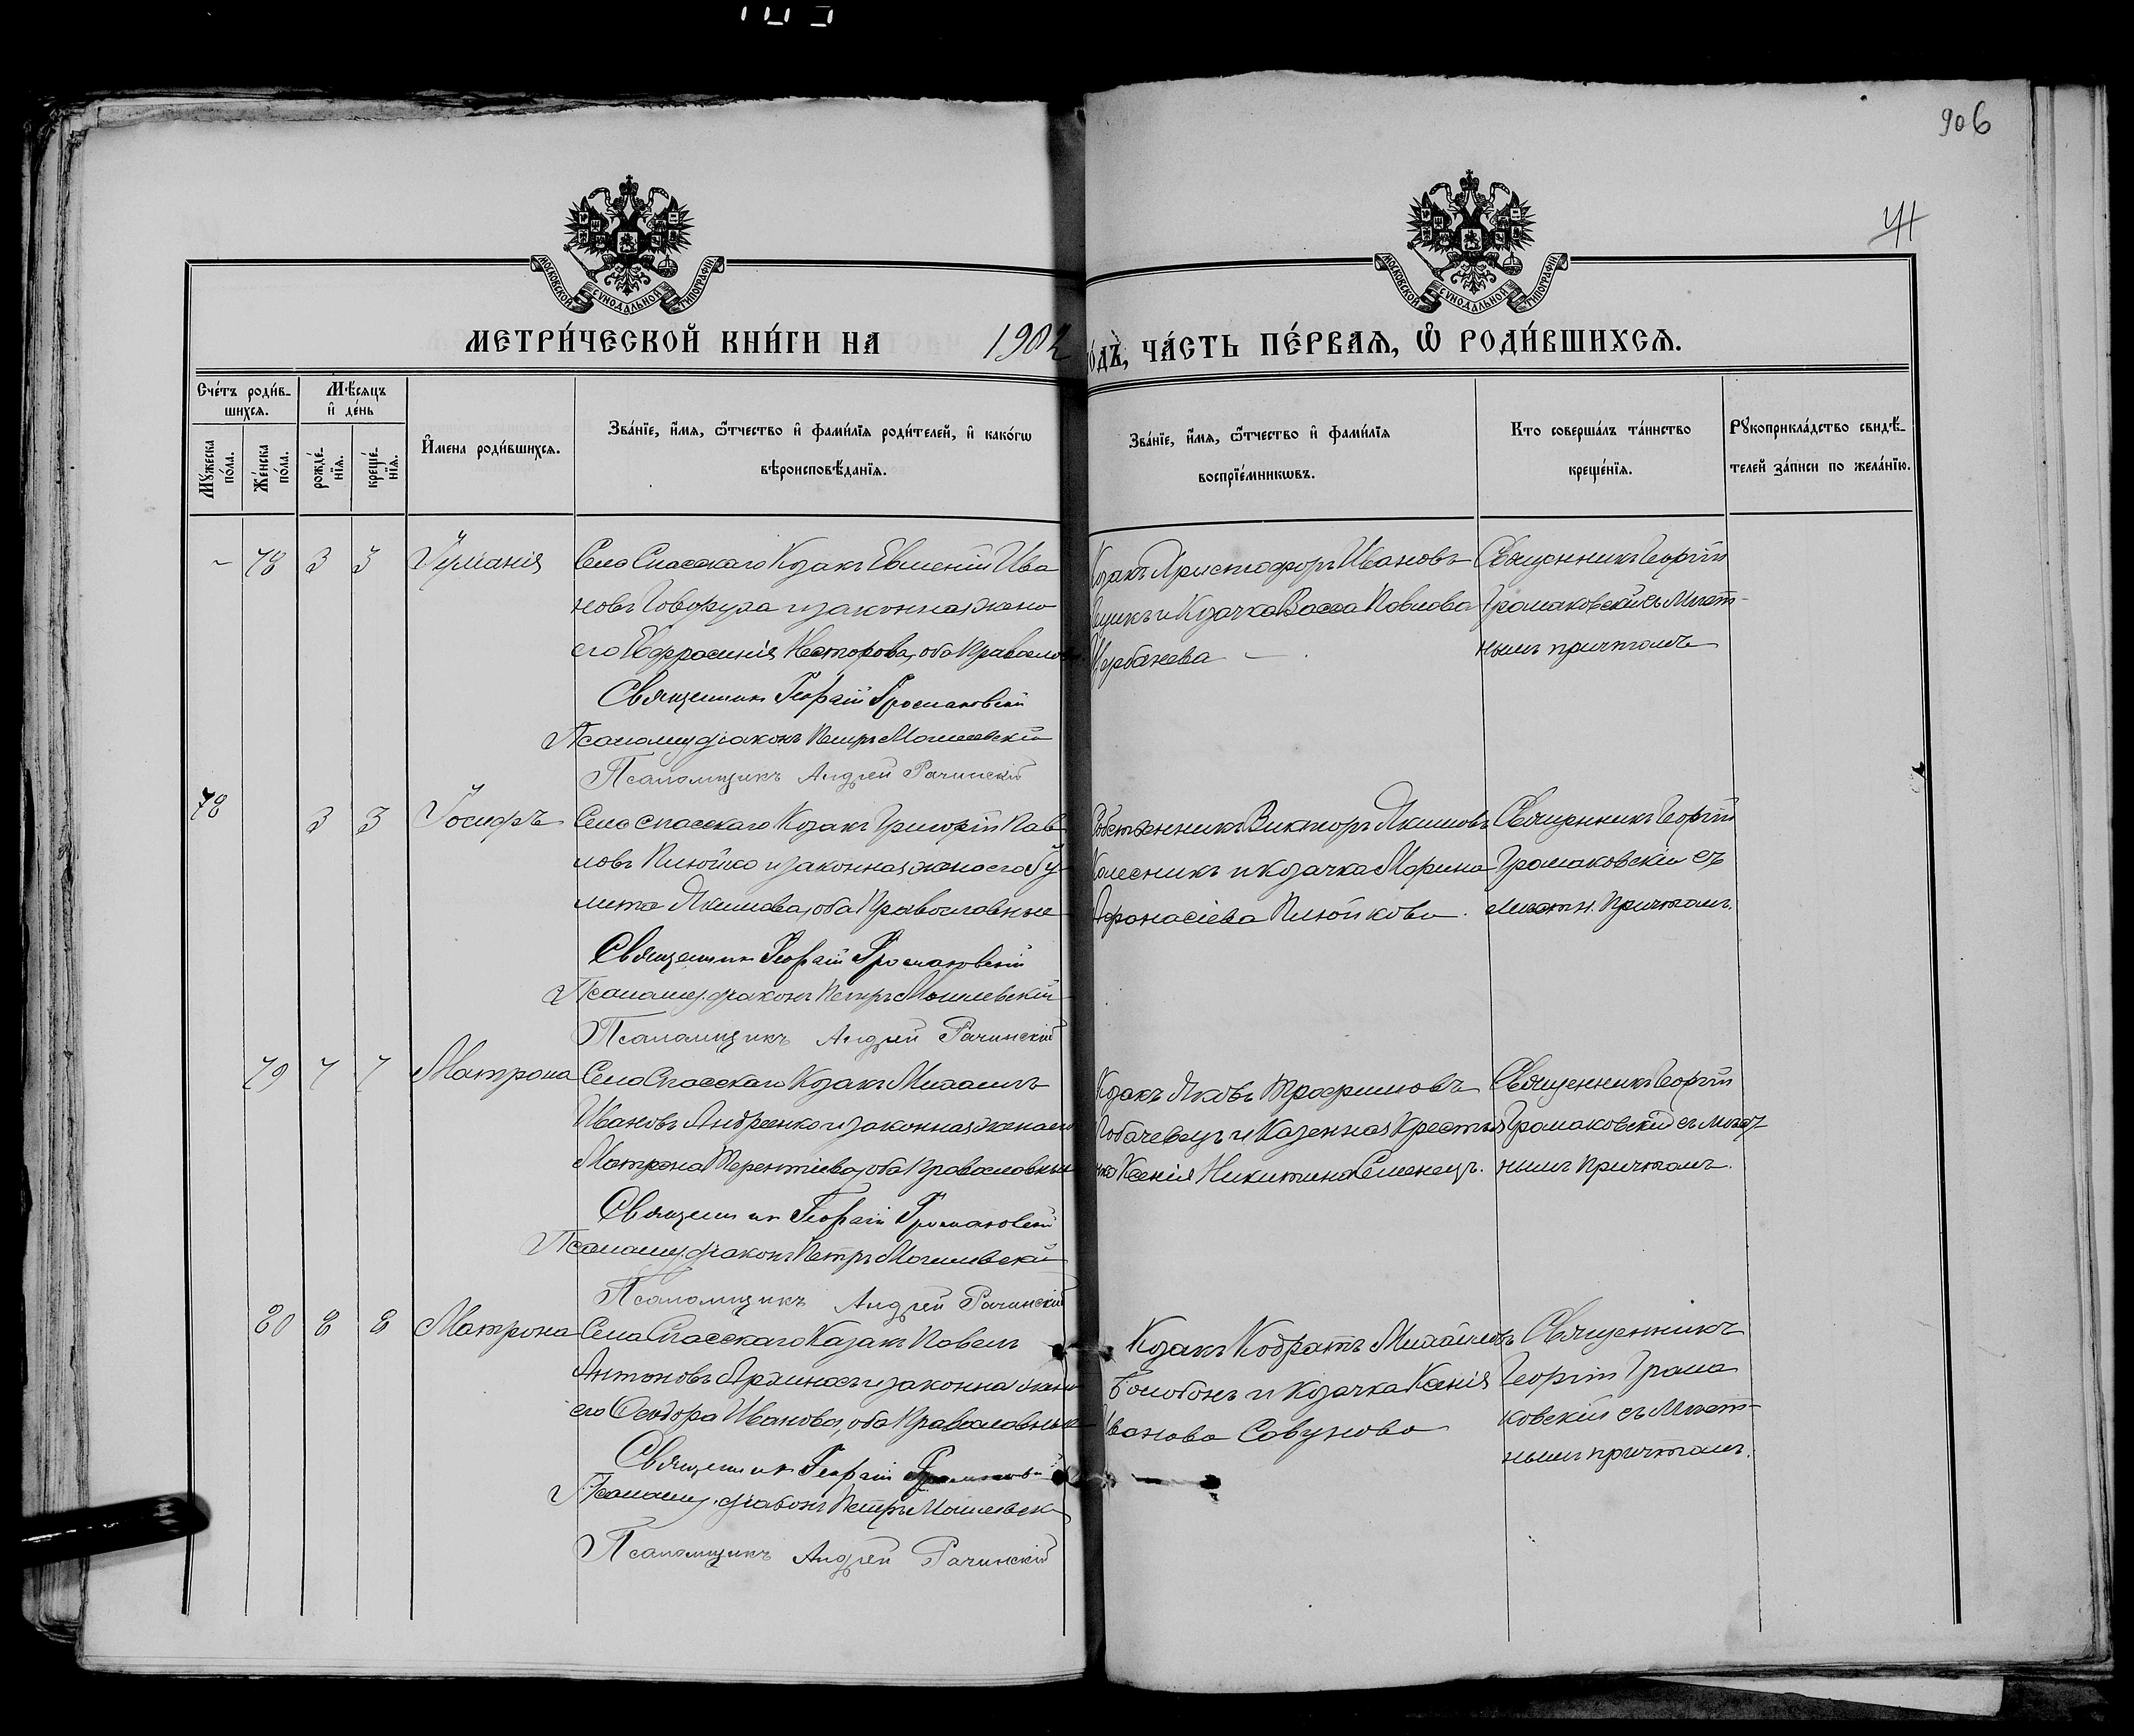 906
41
МОСКОВСКОЙ СѴНОДАЛЬНОЙ ТИПОГРАФІИ
МОСКОВСКОЙ СѴНОДАЛЬНОЙ ТИПОГРАФІИ
МЕТРИ́ЧЕСКОЙ КНИ́ГИ НА 1902
О́ДЪ, ЧА́СТЬ ПЕ́РВАѦ, Ѿ РОДИ́ВШИХСѦ.
Сче́тъ роди́в-
шихсѧ.
Мѣ́сяцъ
и҆ де́нь
Мꙋ́жеска
по́ла.
Же́нска
по́ла.
рожде́-
нїѧ.
креще́-
нїѧ.
И҆мена роди́вшихсѧ.
Зва́нїе, и҆́мѧ, ѻ҆́тчество и҆ фами́лїѧ роди́телей, и҆ како́гѡ
вѣроисповѣ́данїѧ.
Зва́нїе, и҆́мѧ, ѻ҆́тчество и҆ фами́лїѧ
воспрїе́мникѡвъ.
Кто соверша́лъ та́инство
креще́нїѧ.
Рꙋкоприкла́дство свидѣ́-
телей за́писи по жела́нїю.
- 78 3 3 Іуліанія Села Спасскаго Козакъ Евменій Ива
новъ Говоруха и законная жена
его Евфросинія Несторова, оба Православн
Священникъ Георгій Громаковскій
Псаломщ. діаконъ Петръ Могилевскій
Псаломщикъ Андрей Рачинскій
Козакъ Христофоръ Ивановъ
и Козачка Васса Павлова
Щербанева
Священникъ Георгій
Громаковскій съ Мѣст-
нымъ причтомъ
78 3 3 Іосифъ Села Спасскаго Козакъ Григорій Пав
ловъ Плюйко и законная жена его Іу
лита Якимова, оба Православные
Священникъ Георгій Громаковскій
Псаломщ. діаконъ Петръ Могилевскій
Псаломщикъ Андрей Рачинскій
Собственникъ Викторъ Якимовъ
Колесникъ и козачка Марина
Афонасіева Плюйкова.
Священникъ Георгій
Громаковскій съ
мѣстн. Причтомъ.
79 7 7 Матрона Села Спасскаго Козакъ Михаилъ
Ивановъ Андреенко и законная жена его
Матрона Терентіева, оба Православные
Священникъ Георгій Громаковскій
Псаломщ. діаконъ Петръ Могилевскій
Псаломщикъ Андрей Рачинскій
Козакъ Яковъ Трофимовъ
и Казенная Крестья
нка Ксенія Никитина Семенецъ.
Священникъ Георгій
Громаковскій съ мѣст
нымъ причтомъ.
80 8 8 Матрона Села Спасскаго Казакъ Павелъ
Антоновъ и законная жена
его Феодора Иванова, оба Православные
Священникъ Георгій Громаковскій
Псаломщ. діаконъ Петръ Могилевск
Псаломщикъ Андрей Рачинскій
Козакъ Кодратъ Михайловъ
Болобонъ и Козачка Ксенія
Иванова Савунова
Священникъ
Георгій Грома
ковскій съ Мѣст-
нымъ причтомъ.